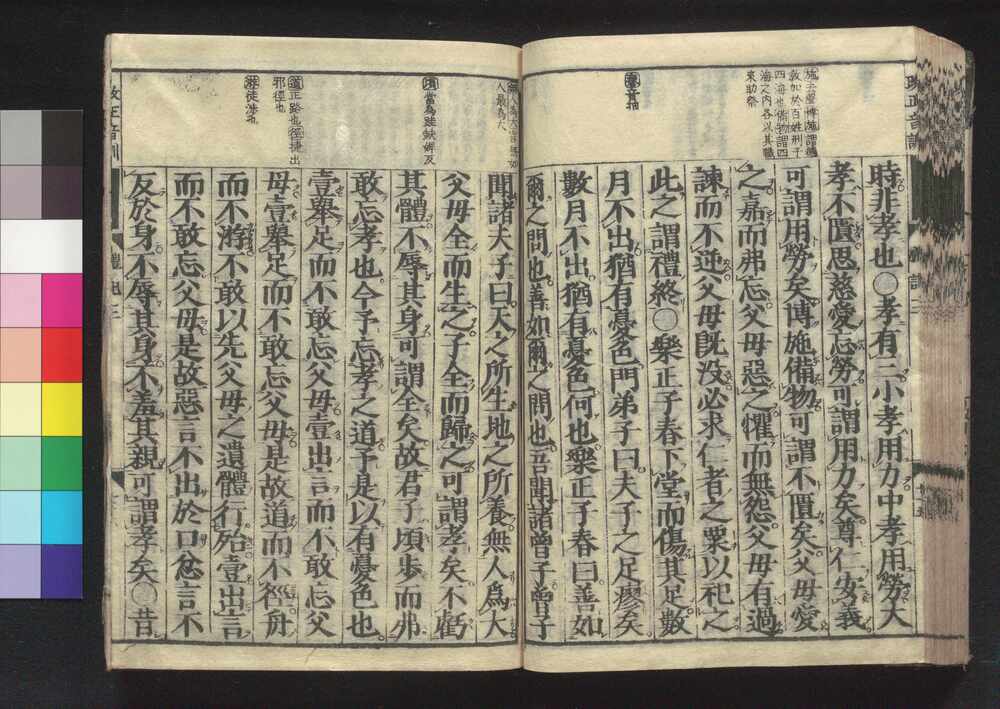 施去聲博施謂德
教加於百姓刑于
四海也備物謂四
海之内各以其職
來助祭
瘳音抽
時非孝也○孝有三小孝用力中孝用勞大
孝不匱思慈愛忘勞可謂用力矣尊仁安義
可謂用勞矣博施備物可謂不匱矣父母愛
之嘉而弗忘父母惡之懼而無怨父母有過
諫而不逆父母既没必求仁者之粟以祀之
此之謂禮終○樂正子春下堂而傷其足數
月不出猶有憂色門弟子曰夫子之足瘳矣
數月不出猶有憂色何也樂正子春曰善如
爾之問也善如爾之問也吾聞諸曾子曾子
人最爲大
頃當為跬
道正路也徑捷出
邪徑也
聞諸夫子曰天之所生地之所養無人爲大
父母全而生之子全而歸之可謂孝矣不虧
其體不辱其身可謂全矣故君子頃步而弗
敢忘孝也今予忘孝之道予是以有憂色也
壹舉足而不敢忘父母壹出言而不敢忘父
母壹舉足而不敢忘父母是故道而不徑舟
而不游不敢以先父母之遺體行殆壹出言
而不敢忘父母是故惡言不出於口忿言不
反於身不辱其身不羞其親可謂孝矣○昔
改正音訓